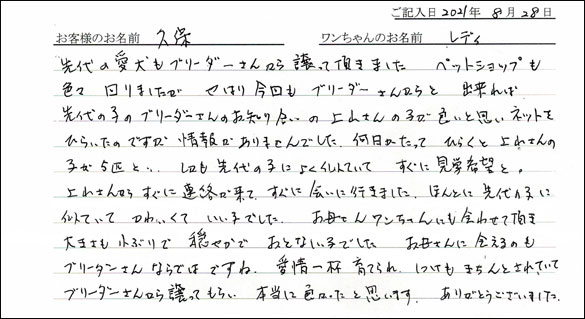 ご記入日 2021年 8月 28日
お客様のお名前 久保 ワンちゃんのお名前 レディ
先代の愛犬もブリーダーさんから譲って頂きました ペットショップも
色々回りましたが やはり今回もブリーダーさんからと 出来れば
先代の子のブリーダーさんのお知り合いの 上村さんの子が良いと思いネットを
ひらいたのですが 情報がありませんでした。何日かたって ひらくと上村さんの
子が5匹と… しかも先代の子によく似ていて すぐに見学希望を。
上村さんからすぐに連絡が来て、すぐに会いに行きました。ほんとに先代の子に
似ていて かわいくて いい子でした。 お母さんワンちゃんにも会わせて頂き
大きさも小ぶりで 穏やかで おとなしい子でした お母さんに会えるのも
ブリーダーさんならではですね。愛情一杯育てられ、しつけもきちんとされていて
ブリーダーさんから譲ってもらい 本当に良かったと思います。 ありがとうございました。